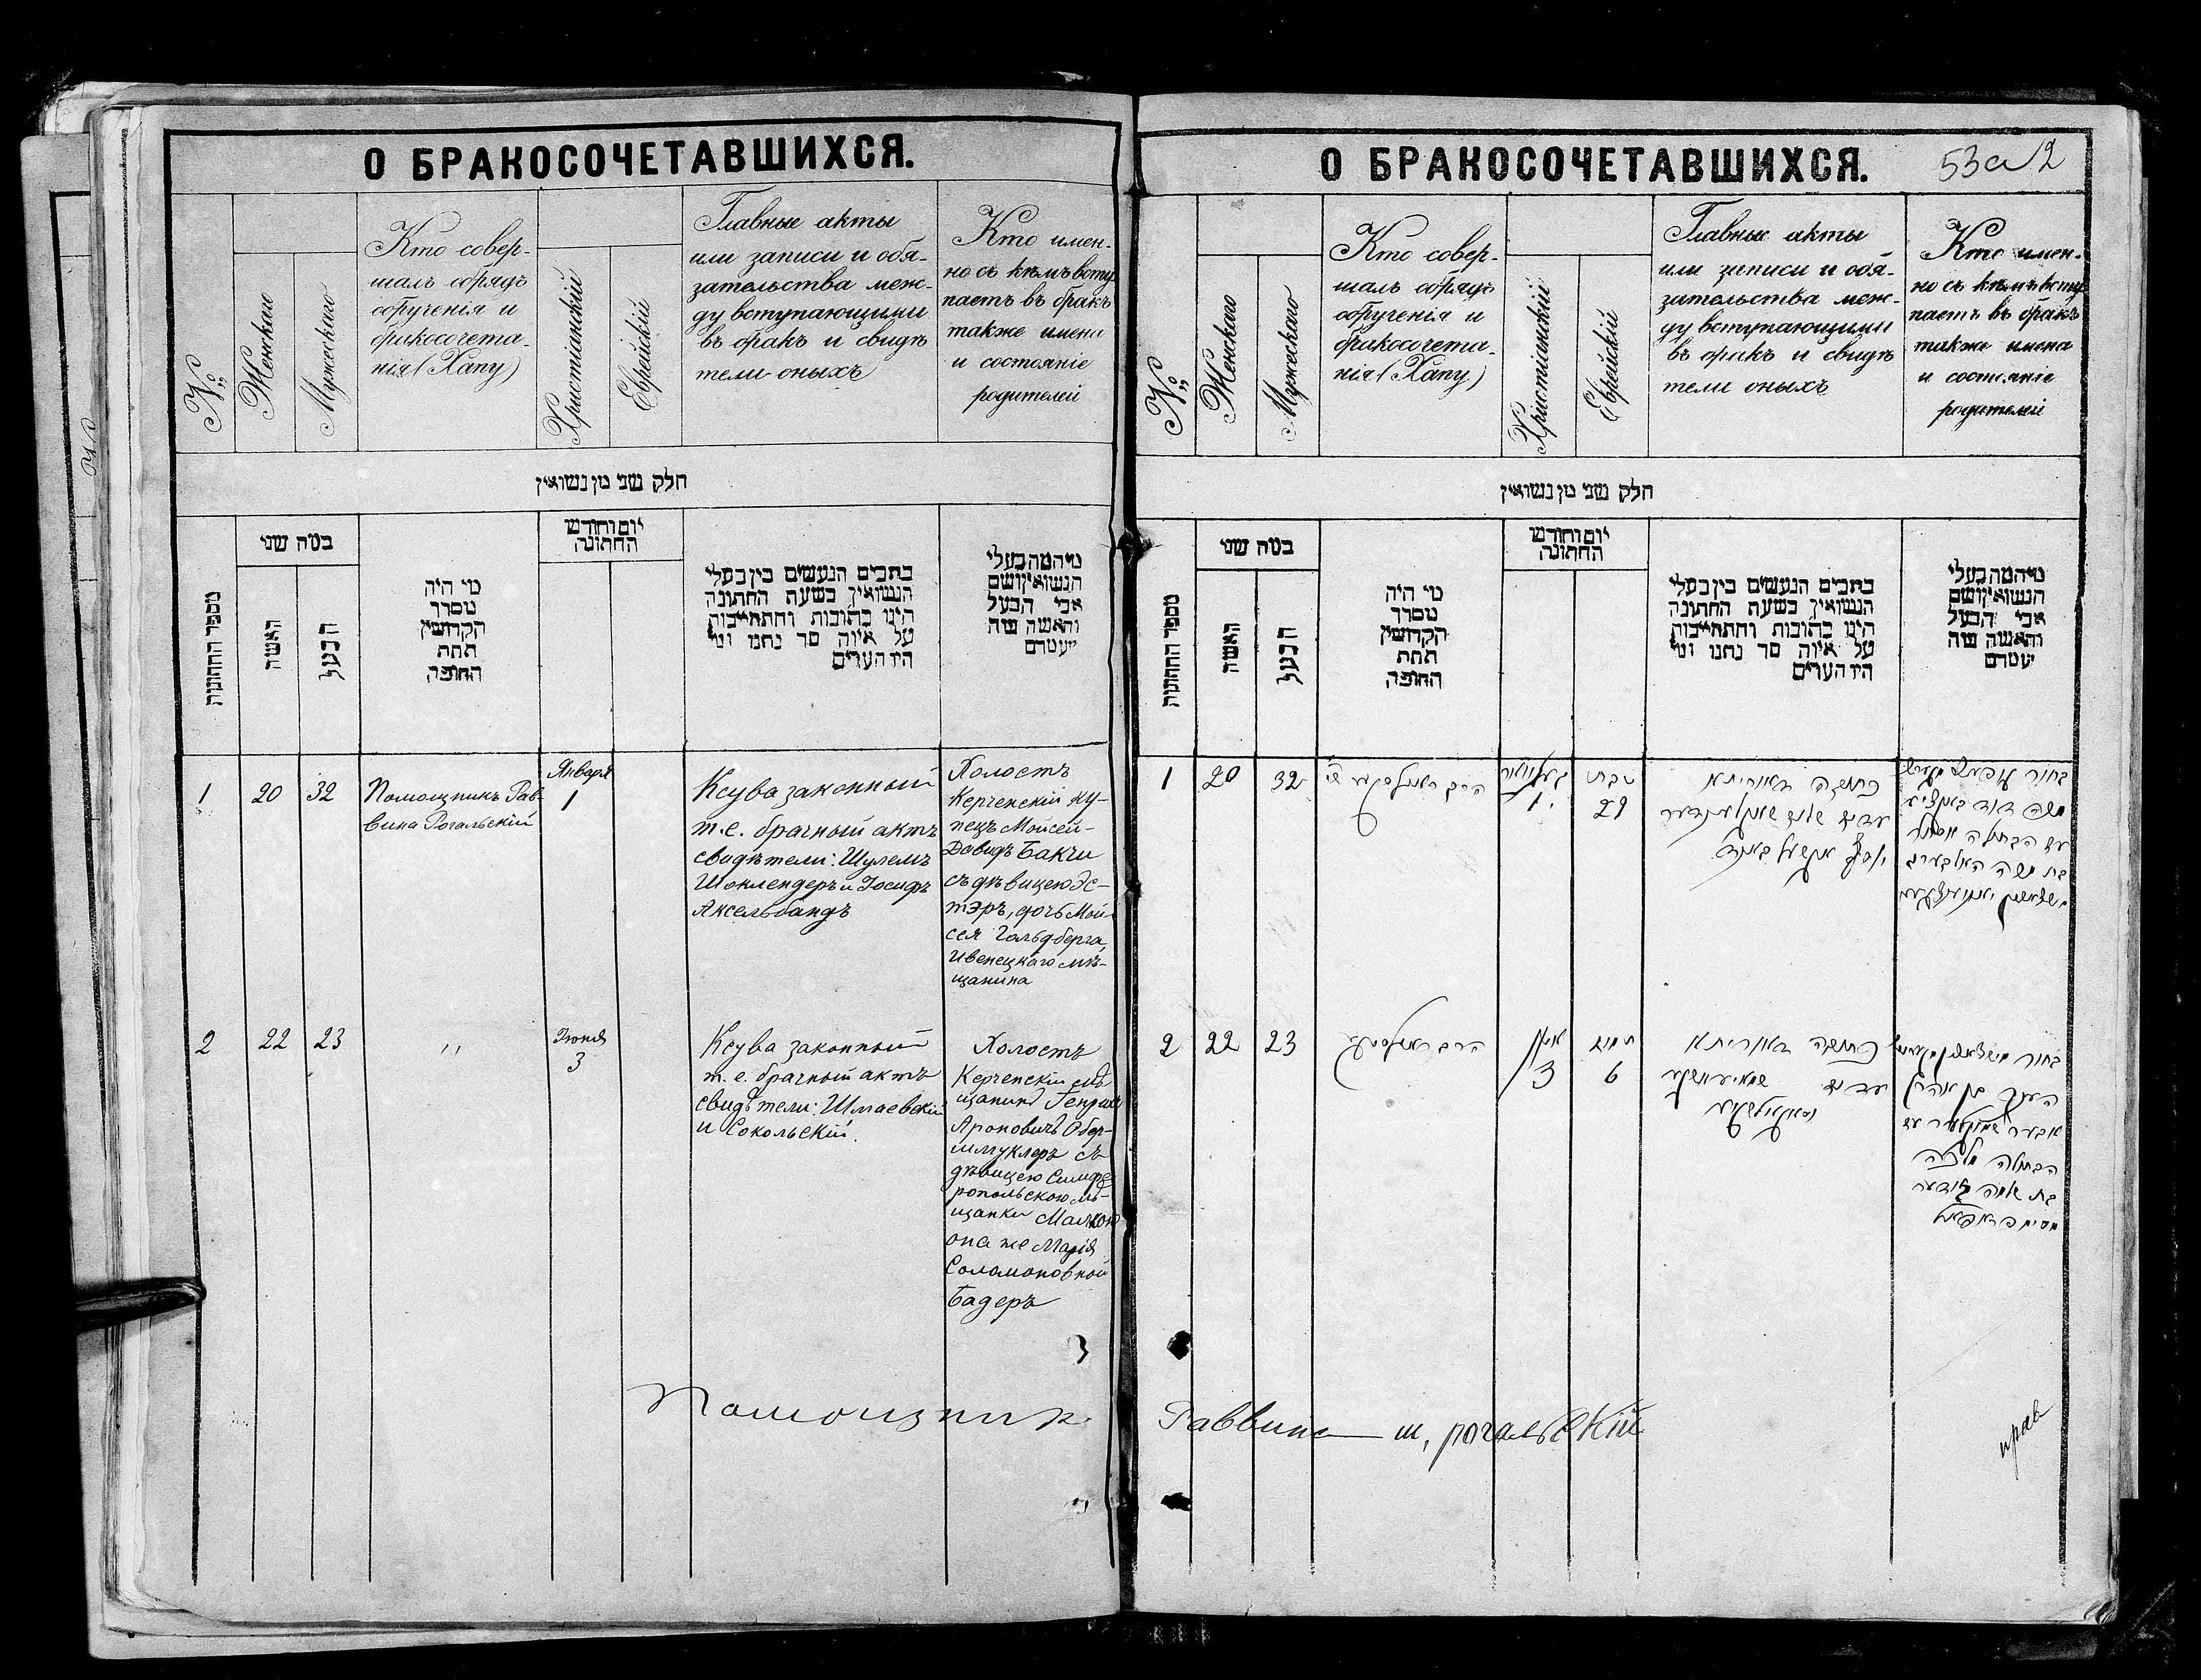 О БРАКОСОЧЕТАВШИХСЯ.
№
Женскаго
Мужескаго
Кто совер-
шалъ обрядъ
обрученія и
бракосочета-
нія (Хапу)
Христіанскій
Еврейскій
Главные акты
или записи и обя-
зательства меж-
ду вступающими
въ бракъ и свидѣ
тели оныхъ
Кто имен-
но съ кѣмъ всту
паетъ въ бракъ
также имена
и состояніе
родителей
חלק שני מן נשואין
מספר החתונות
כמה שני
האשה
הבעל
מי היה
מסדר
הקדושין
תחת
החופה
יום וחודש
החתונה
כתבים הנעשים בין בעלי
הנשואין בשעת החתונה
היינו כתובות והתחייבות
על איזה סך נתנו ומי
היו העדים
מי המה בעלי
הנשואין ושם
אבי הבעל
והאשה ומה
מעמדם
1
20
32
Помощникъ Рав-
вина Рогальскій
Января
1
Ксува законный
т.е. брачный актъ
свидѣтели: Шулемъ
Шоклендеръ и Іосифъ
Аксельбандъ
Холостъ
Керченскій ку-
пецъ Мойсей-
Давидъ Бакчи
съ дѣвицею Эс-
тэръ, дочь Мой-
сея Гольдберга,
Ивенецкаго мѣ-
щанина
2
22
23
"
Іюня
3
Ксува законный
т.е. брачный актъ
свидѣтели: Шмаевскій
и Сокольскій.
Холостъ
Керченскій мѣ
щанинъ Генрихъ
Ароновичъ Обер-
шмуклеръ съ
дѣвицею Симфе
ропольскою мѣ-
щанки Малкою
она же Марія
Соломоновной
Бадеръ
Помощникъ
О БРАКОСОЧЕТАВШИХСЯ.
53а 2
№
Женскаго
Мужескаго
Кто совер-
шалъ обрядъ
обрученія и
бракосочета-
нія (Хапу)
Христіанскій
Еврейскій
Главные акты
или записи и обя-
зательства меж-
ду вступающими
въ бракъ и свидѣ
тели оныхъ
Кто имен-
но съ кѣмъ всту
паетъ въ бракъ
также имена
и состояніе
родителей
חלק שני מן נשואין
מספר החתונות
כמה שני
האשה
הבעל
מי היה
מסדר
הקדושין
תחת
החופה
יום וחודש
החתונה
כתבים הנעשים בין בעלי
הנשואין בשעת החתונה
היינו כתובות והתחייבות
על איזה סך נתנו ומי
היו העדים
מי המה בעלי
הנשואין ושם
אבי הבעל
והאשה ומה
מעמדם
1
20
32
הרב
1
טבת
29
כתובה דאוריתא
עדים
יוסף
בחור
משה דוד
עם הבתולה
בת משה
2
22
23
הרב
3
תמוז
6
כתובה דאוריתא
עדים
בחור
בן אהרן
הבתולה מלכה
בת שלמה
Раввина ш, рогальскій